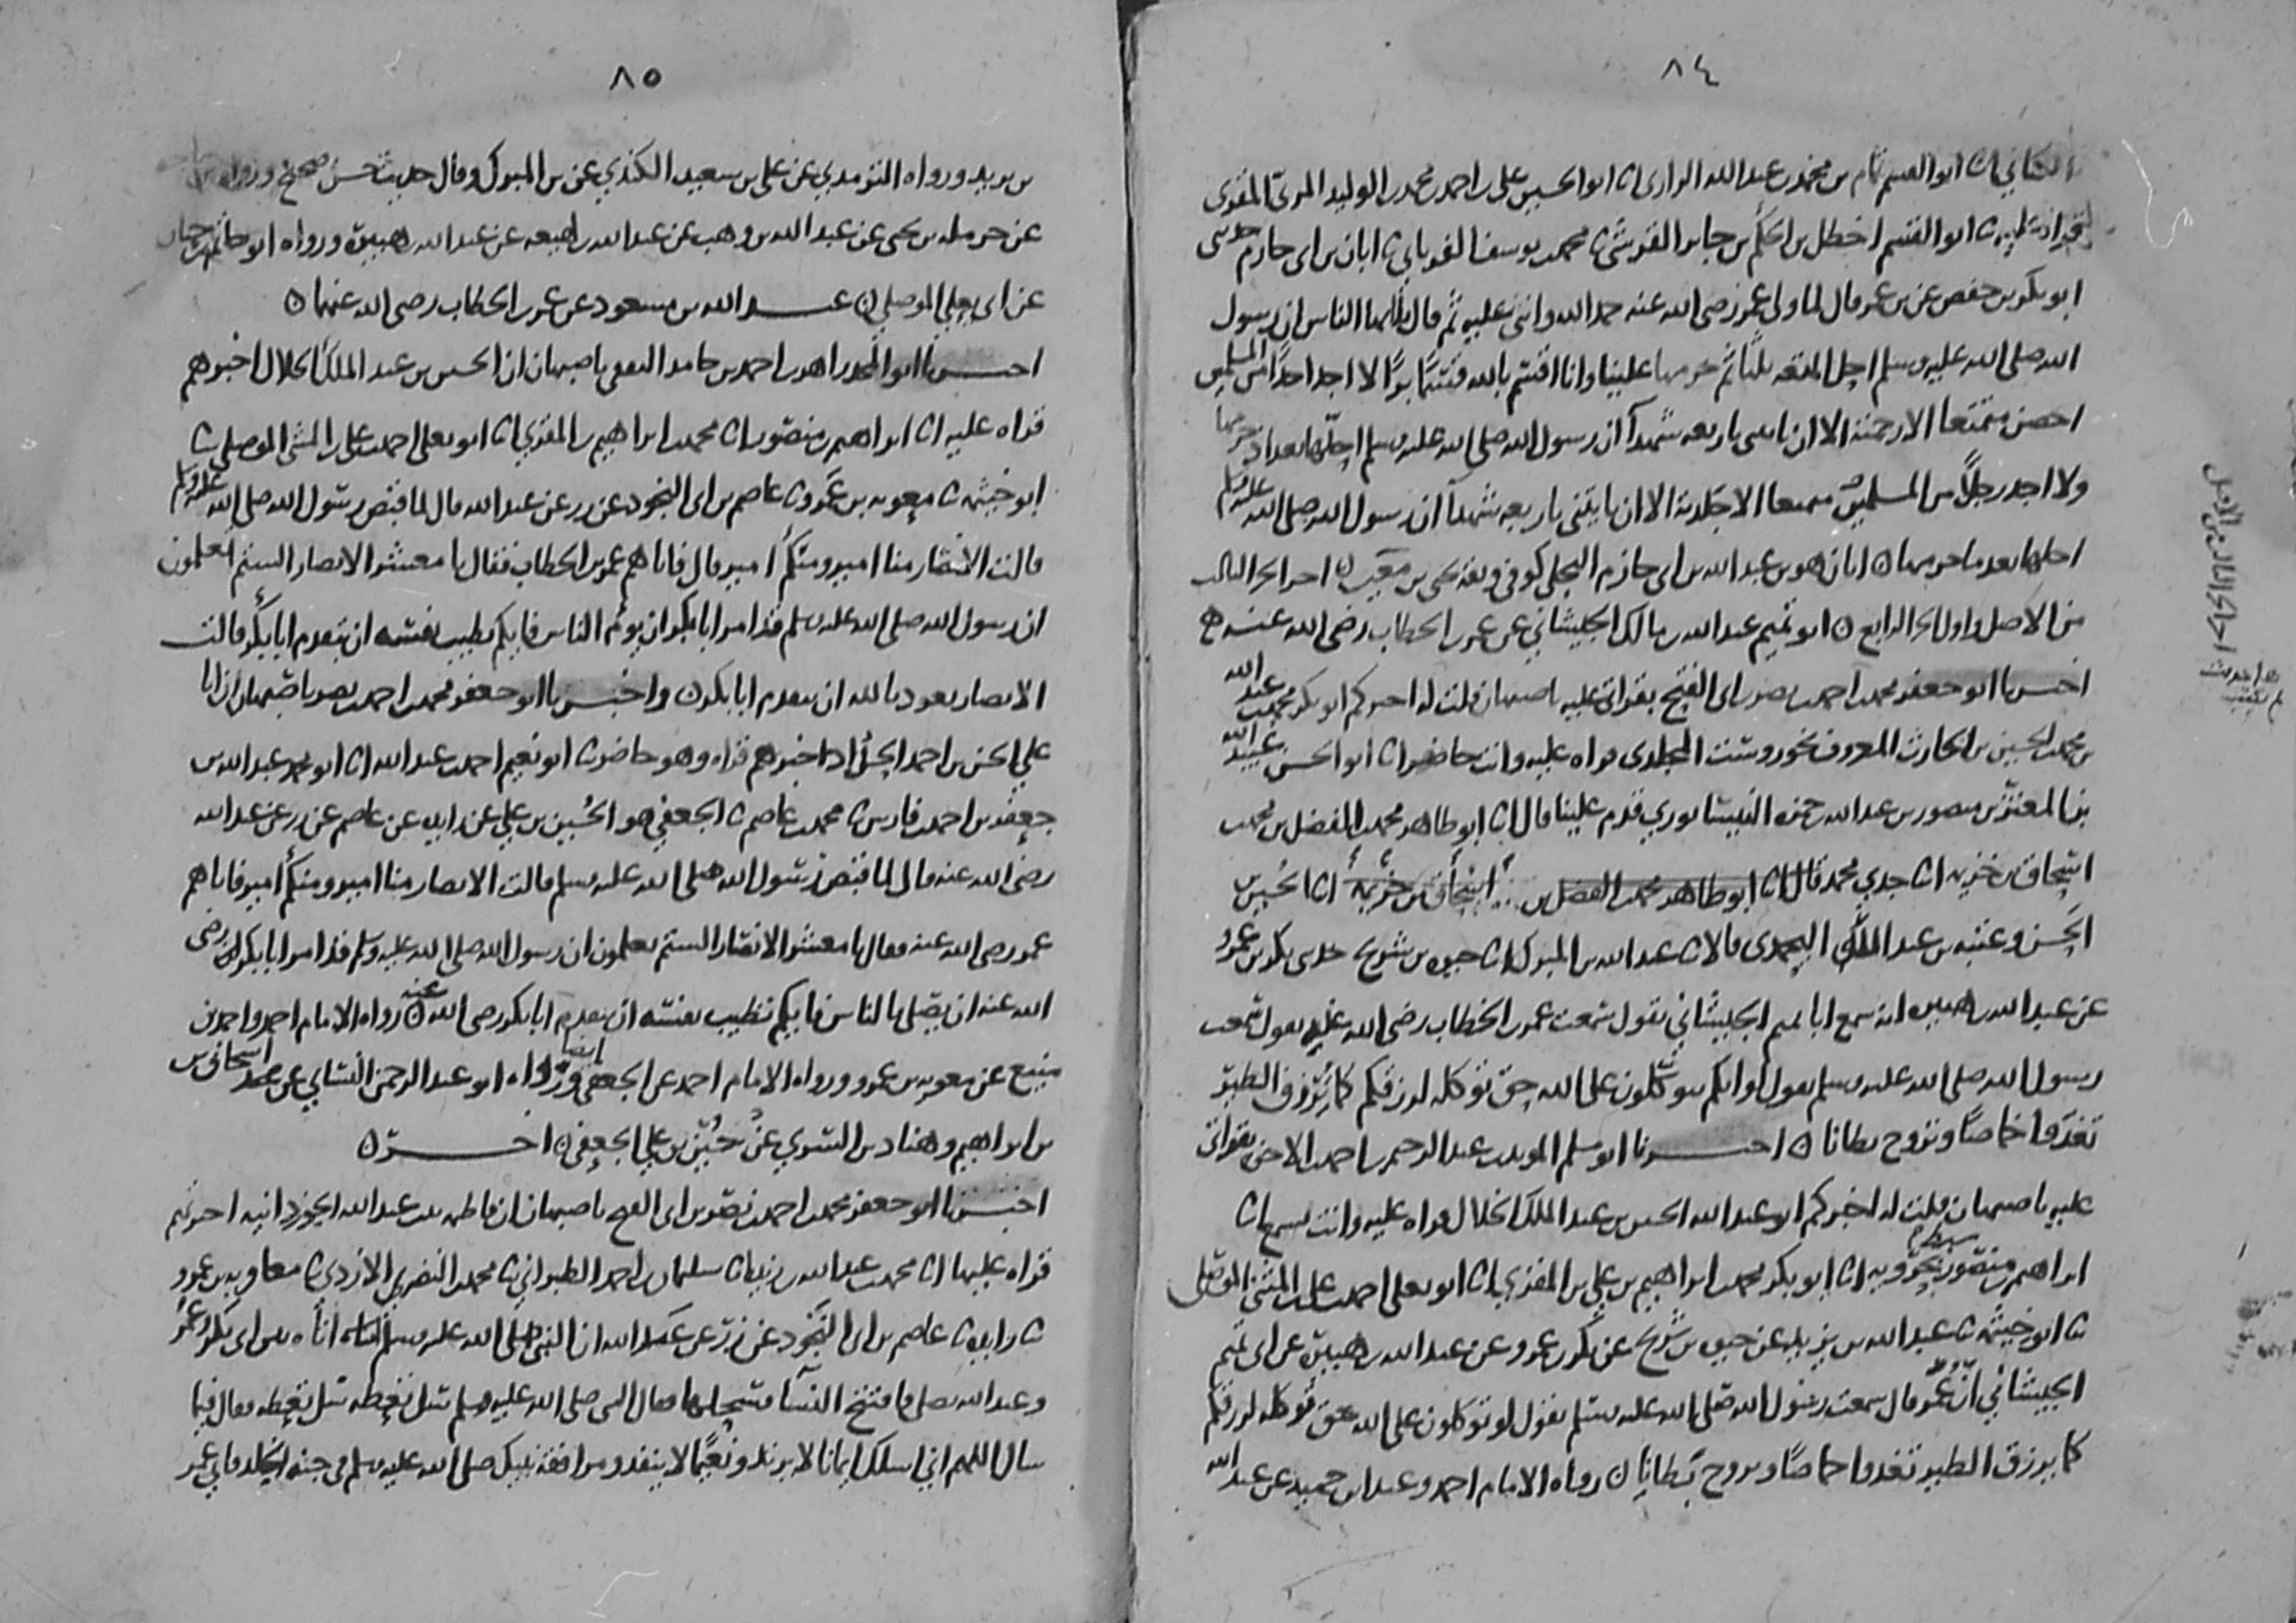 ٨٤
الكتاني انا ابو القسم تمام بن محمد بن عبد الله الرازي انا ابو الحسين علي بن احمد بن محمد بن الوليد المري المقرئ
ابو القسم اخطل بن الحكم بن جابر القرشي ثنا محمد بن يوسف الفريابي ثنا ابان بن ابي حازم حدثني
ابو بكر بن حفص عن بن عمر قال لما ولي عمر رضي الله عنه حمد الله واثنى عليه ثم قال يا ايها الناس ان رسول
الله صلى الله عليه وسلم احل المتعه ثلثا ثم حرمها علينا وانا اقسم بالله قسما برا لا اجد احدا من المسلمين
احصن متمتعا الا رجمته الا ان ياتي باربعه شهدا ان رسول الله صلى الله عليه وسلم احلها بعد اذ حرمها
ولا اجد رجلا من المسلمين متمتعا الا جلدته الا ان ياتيني باربعه شهدا ان رسول الله صلى الله عليه وسلم
احلها بعد ما حرمها ن ابان هو بن عبد الله بن ابي حازم البجلي كوفي وثقه يحيى بن معين ن اخر الجزء الثالث
من الاصل واول الجزء الرابع ن ابو تميم عبد الله بن مالك الجيشاني عن عمر بن الخطاب رضي الله عنه
اخبرنا ابو جعفر محمد بن احمد بن نصر بن ابي الفتح بقراتي عليه باصبهان قلت له اخبركم ابو بكر محمد بن عبد الله
بن محمد بن الحسين بن الحارث المعروف بخوروست المجلدي قراه عليه وانت حاضر انا ابو الحسن عبيد الله
بن المعتز بن منصور بن عبد الله بن حمزه النيسابوري قدم علينا قال انا ابو طاهر محمد بن الفضل بن محمد
اسحاق بن خزيمه انا جدي محمد قال انا ابو طاهر محمد بن الفضل بن اسحاق بن خزيمة انا الحسين بن
الحسن وعتبه بن عبد الله اليحمدي قالا انا عبد الله بن المبرك انا حيوه بن شريح حدثني بكر بن عمرو
عن عبد الله بن هبيره انه سمع ابا تميم الجيشاني يقول سمعت عمر بن الخطاب رضي الله عنه يقول سمعت
رسول الله صلى الله عليه وسلم يقول لو انكم تتوكلون على الله حق توكله لرزقكم كما يرزق الطير
تغدوا خماصا وتروح بطانا ن اخبرنا ابو مسلم المويد بن عبد الرحيم بن احمد بن الاخوة بقراتي
عليه باصبهان قلت له اخبركم ابو عبد الله الحسين بن عبد الملك الخلال قراه عليه وانت تسمع انا
ابراهيم بن منصور سبط بحرويه انا ابو بكر محمد بن ابراهيم بن علي بن المقرئ انا ابو يعلى احمد بن علي بن المثنى الموصلي
ثنا ابو خيثمه ثنا عبد الله بن يزيد عن حيوه بن شريح عن بكر بن عمرو عن عبد الله بن هبيرة عن ابي تميم
الجيشاني ان عمر قال سمعت رسول الله صلى الله عليه وسلم يقول لو توكلون على الله حق توكله لرزقكم
كما يرزق الطير تغدوا خماصا وتروح بطانا ن رواه الامام احمد وعبد بن حميد عن عبد الله
اخر الجزء الثالث من الاصل
هذا حديث
لم يكتب
٨٥
بن يزيد ورواه الترمذي عن علي بن سعيد الكندي عن بن المبرك وقال حديث حسن صحيح ورواه بن ماجه
عن حرمله بن يحيى عن عبد الله بن وهب عن عبد الله بن لهيعه عن عبد الله بن هبيرة ورواه ابو حاتم بن حبان
عن ابي يعلى الموصلي ن عبد الله بن مسعود عن عمر بن الخطاب رضي الله عنهما ن
اخبرنا ابو المجد زاهر بن احمد بن حامد الثقفي باصبهان ان الحسين بن عبد الملك الخلال اخبرهم
قراه عليه انا ابراهيم بن منصور انا محمد بن ابراهيم بن المقرئ انا ابو يعلى احمد بن علي بن المثنى الموصلي ثنا
ابو خيثمه ثنا معويه بن عمرو ثنا عاصم بن ابي النجود عن زر عن عبد الله قال لما قبض رسول الله صلى الله عليه وسلم
قالت الانصار منا امير ومنكم امير قال فاتاهم عمر بن الخطاب فقال يا معشر الانصار الستم تعلمون
ان رسول الله صلى الله عليه وسلم قد امر ابا بكر ان يوم الناس فايكم تطيب نفسه ان يتقدم ابا بكر قالت
الانصار نعوذ بالله ان نتقدم ابا بكر ن واخبرنا ابو جعفر محمد بن احمد بن نصر باصبهان ان ابا
علي الحسن بن احمد الحداد اخبرهم قراه وهو حاضر ثنا ابو نعيم احمد بن عبد الله انا ابو محمد عبد الله بن
جعفر بن احمد بن فارس ثنا محمد بن عاصم ثنا الجعفي هو الحسين بن علي عن زايده عن عاصم عن زر عن عبد الله
رضي الله عنه قال لما قبض رسول الله صلى الله عليه وسلم قالت الانصار منا امير ومنكم امير فاتاهم
عمر رضي الله عنه فقال يا معشر الانصار الستم تعلمون ان رسول الله صلى الله عليه وسلم قد امر ابا بكر رضي
الله عنه ان يصلي بالناس فايكم تطيب نفسه ان يتقدم ابا بكر رضي الله عنه ن رواه الامام احمد واحمد بن
منيع عن معويه بن عمرو ورواه الامام احمد عن الجعفي ايضا ورواه ابو عبد الرحمن النساي عن اسحاق بن
بن ابراهيم وهناد بن السري عن حسين بن علي الجعفي ن اخر ن
اخبرنا ابو جعفر محمد بن احمد بن نصر بن ابي الفتح باصبهان ان فاطمه بنت عبد الله الجوزدانيه اخبرتهم
قراه عليها انا محمد بن عبد الله بن ريذه انا سليمان بن احمد الطبراني ثنا محمد بن النضر الازدي ثنا معاويه بن عمرو
ثنا زايده ثنا عاصم بن ابي النجود عن زر عن عبد الله ان النبي صلى الله عليه وسلم اتاه بين ابي بكر وعمر
وعبد الله يصلي فافتتح النسا فسحلها فقال النبي صلى الله عليه وسلم سل تعطه سل تعطه فقال فيما
سال اللهم اني اسلك ايمانا لا يرتد ونعيما لا ينفد ومرافقة نبيك صلى الله عليه وسلم في جنه الخلد فاتى عمر